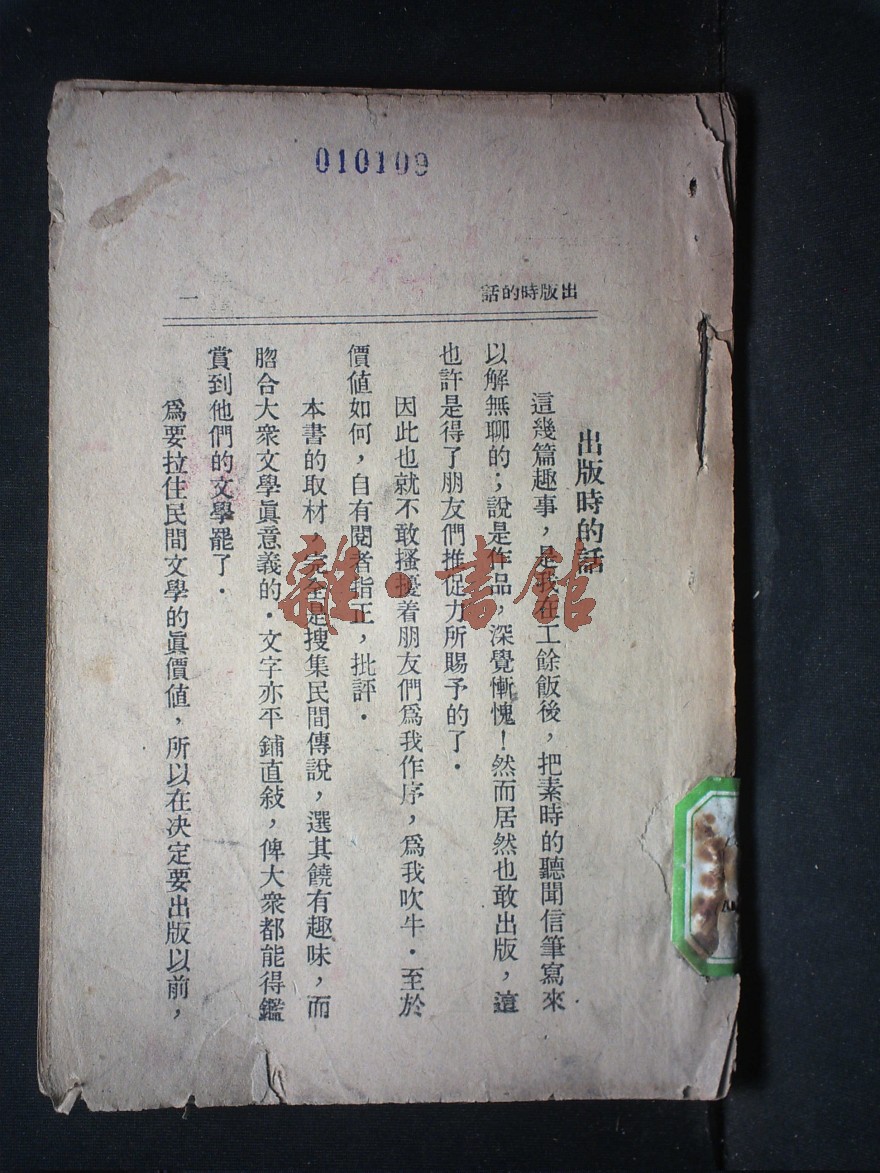 010109
出版時的話
一
出版時的話
這幾篇趣事，是我在工餘飯後，把素時的聽聞信筆寫來
以解無聊的；說是作品，深覺慚愧！然而居然也敢出版，這
也許是得了朋友們推促力所賜予的了．
因此也就不敢搔擾着朋友們爲我作序，爲我吹牛．至於
價値如何，自有閱者指正，批評．
本書的取材，完全是搜集民間傳說，選其饒有趣味，而
脗合大衆文學眞意義的．文字亦平鋪直敍，俾大衆都能得鑑
賞到他們的文學罷了．
爲要拉住民間文學的眞價値，所以在決定要出版以前，
雜·書館